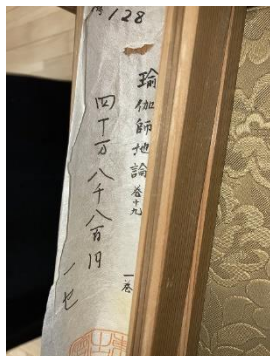 128
瑜伽師地論 巻十九
一巻
四十万八千八百円